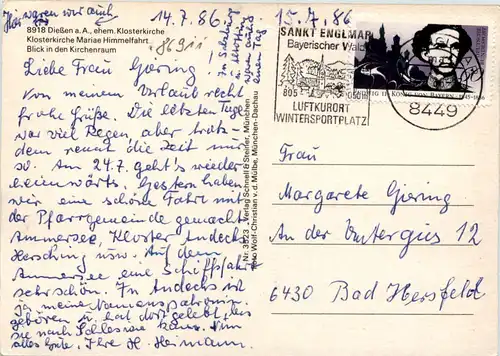 Hier waren wir auch
14.7.86
15.7.86
8918 Dießen a. A., ehem. Klosterkirche
Klosterkirche Mariae Himmelfahrt
Blick in den Kirchenraum
Liebe Frau Giering
Von meinem Urlaub recht
frohe Grüße. Die letzten Tage
war viel Regen aber trotz-
dem rennt die Zeit nur
so. Am 24.7. geht's wieder
heimwärts. Gestern haben
wir eine schöne Fahrt mit
der Pfarrgemeinde gemacht
Ammersee, Kloster Andechs
Hersching usw. Auf dem
Ammersee eine Schiffsfahrt
sehr schön. In Andechs ist
ja meine Namenspatronin
geboren u. hat dort gelebt, bis
sie nach Schlesien kam. Nun
alles Gute. Ihre H. Heimann.
Nr. 3523 Verlag Schnell & Steiner, München
Foto Wolf-Christian v. d. Mülbe, München-Dachau
SANKT ENGLMAR
Bayerischer Wald
805
LUFTKURORT
WINTERSPORTPLATZ
8449
Frau
Margarete Giering
An der Untergeis 12
6430 Bad Hersfeld